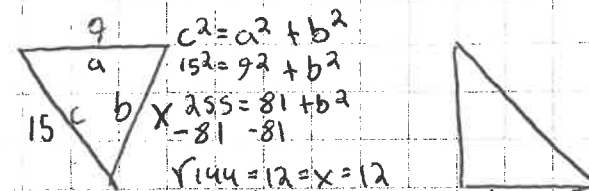 9
a
15 c b x
c² = a² + b²
15² = 9² + b²
255 = 81 + b²
-81 -81
√144 = 12 = x = 12